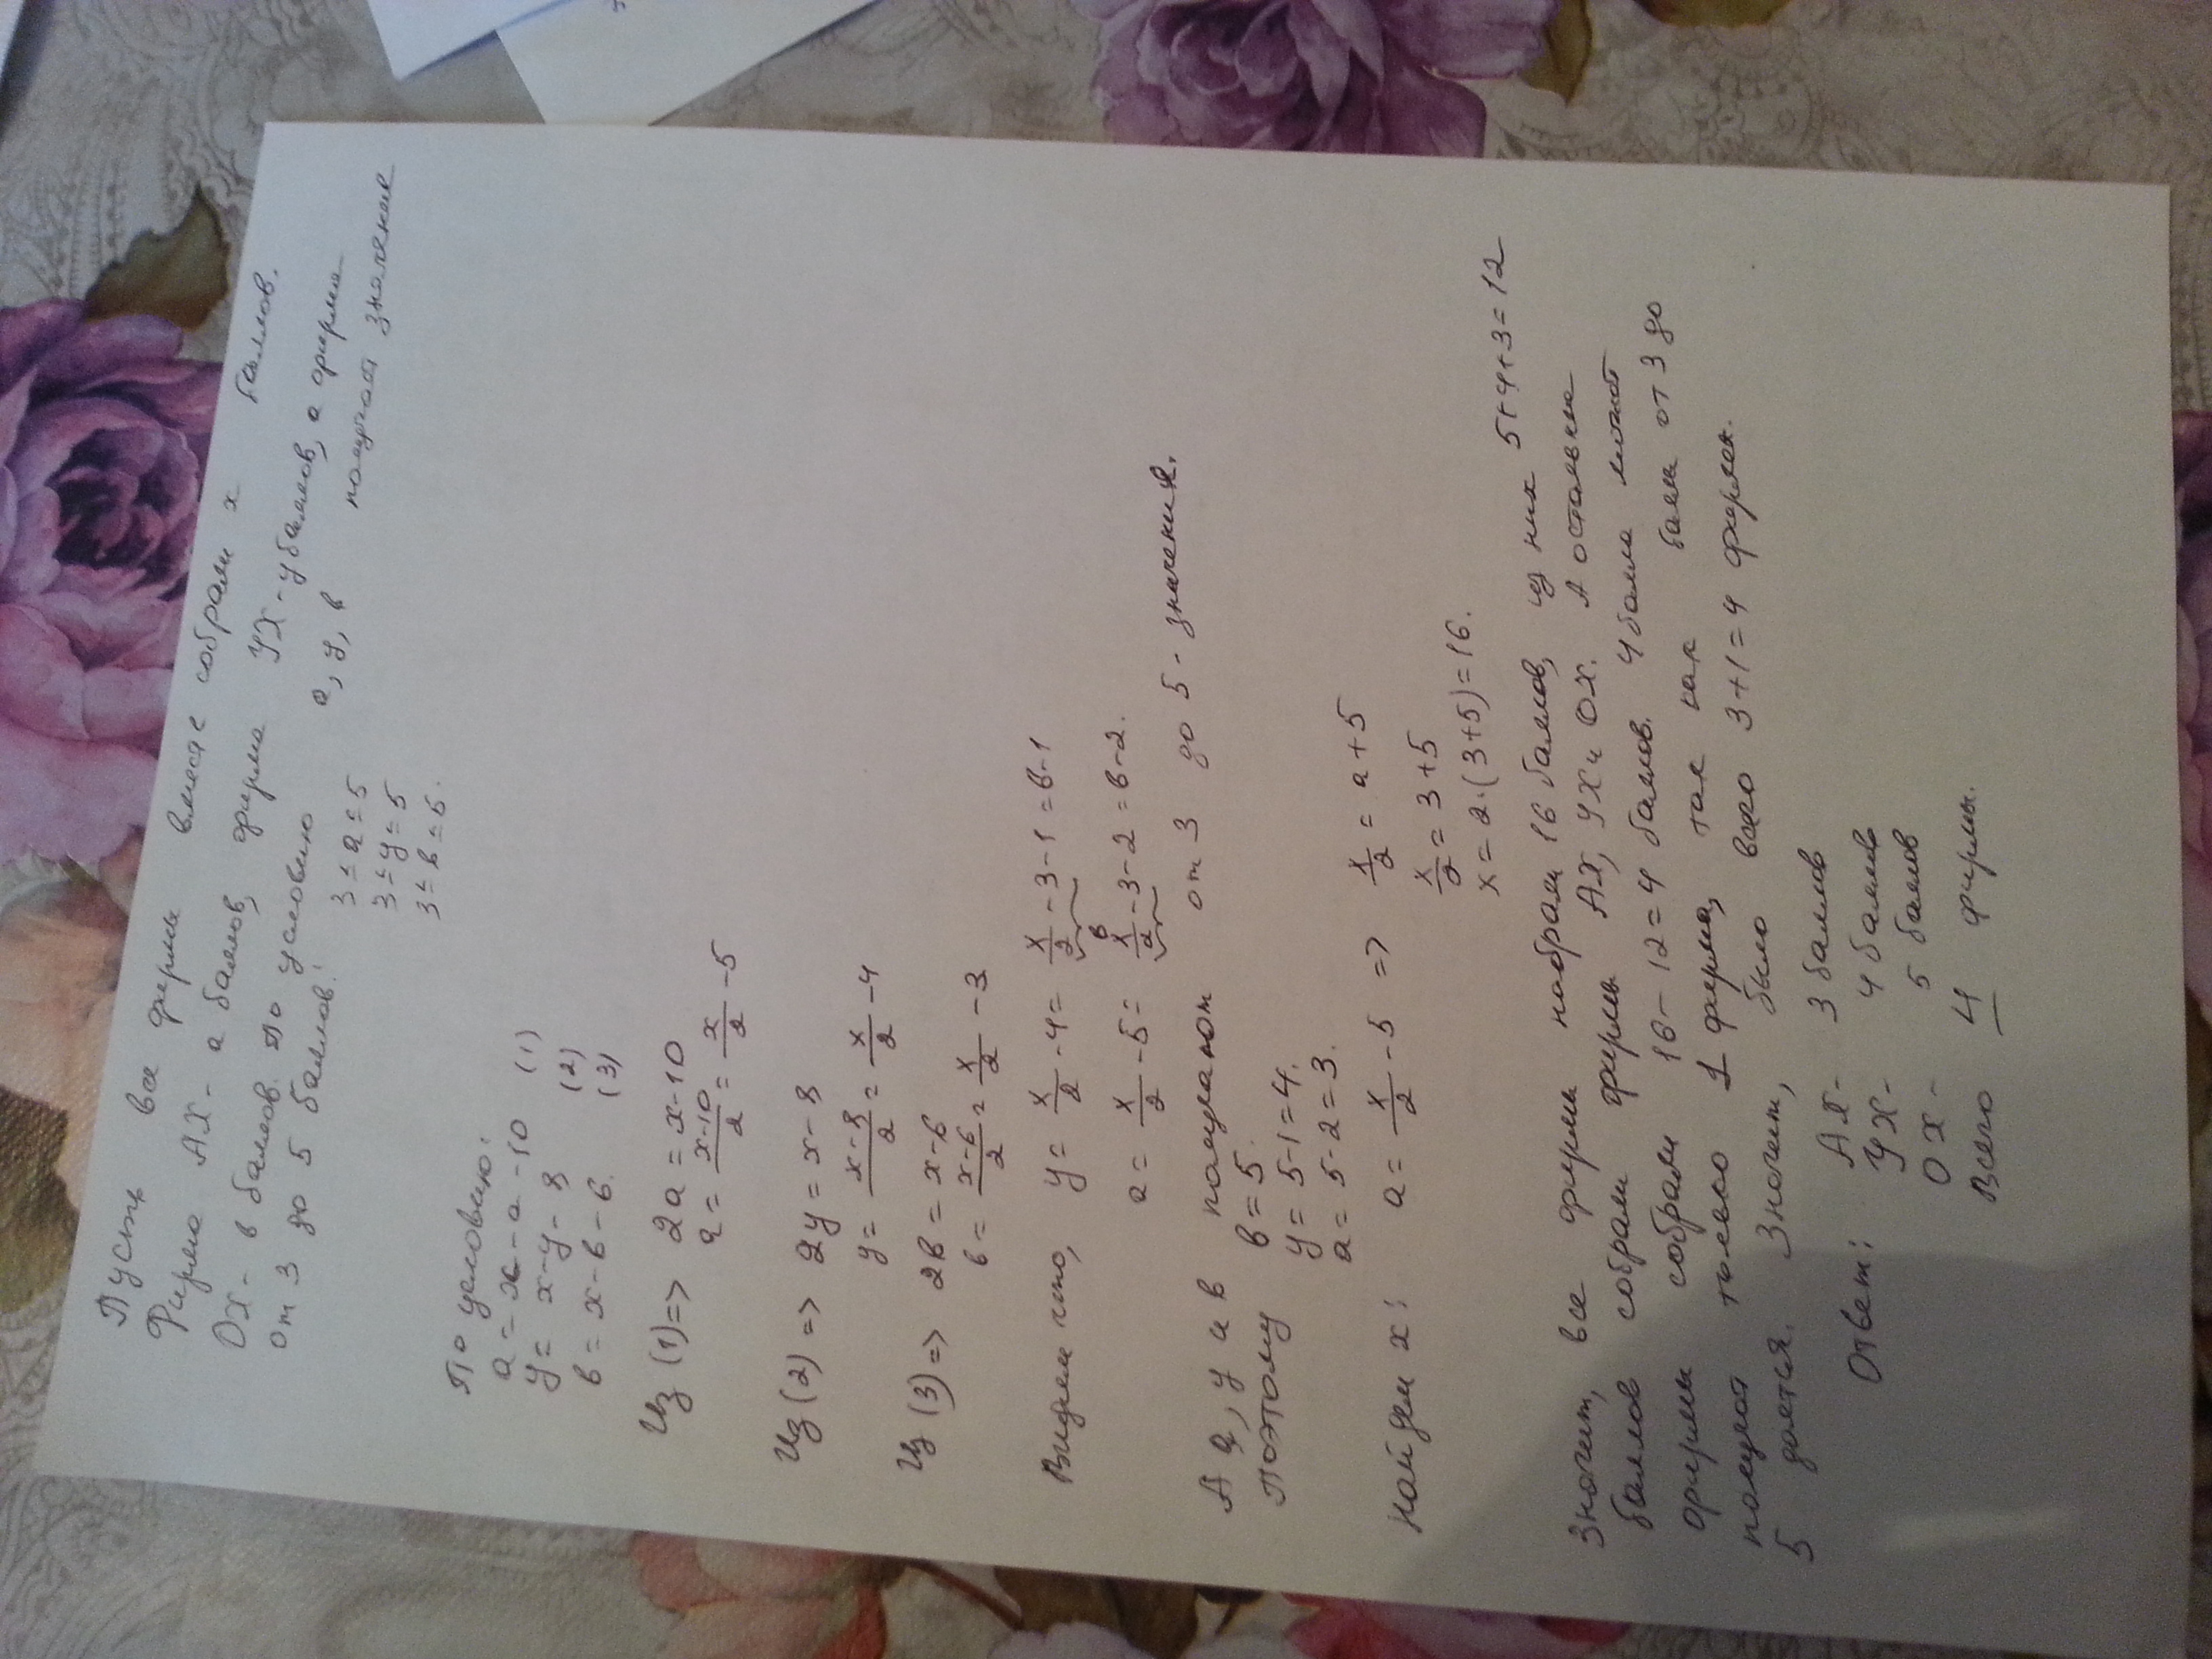 Пусть все фирмы вместе собрали х баллов.
Фирма АХ - а баллов, фирма УХ - у баллов, а фирма
ОХ - в баллов. По условию а, у, в получают значение
от 3 до 5 баллов:
3 ≤ а ≤ 5
3 ≤ у ≤ 5
3 ≤ в ≤ 5.
По условию:
а = х - а - 10 (1)
у = х - у - 8 (2)
в = х - в - 6. (3)
Из (1) => 2а = х - 10
а = (х-10)/2 = х/2 - 5
Из (2) => 2у = х - 8
у = (х-8)/2 = х/2 - 4
Из (3) => 2в = х - 6
в = (х-6)/2 = х/2 - 3
Видим что, у = х/2 - 4 = х/2 - 3 - 1 = в - 1
в
а = х/2 - 5 = х/2 - 3 - 2 = в - 2.
А а, у и в получают от 3 до 5 - значения.
Поэтому в = 5.
у = 5 - 1 = 4.
а = 5 - 2 = 3.
Найдем х: а = х/2 - 5 => х/2 = а + 5
х/2 = 3 + 5
х = 2·(3+5) = 16.
Значит, все фирмы набрали 16 баллов, из них 5+4+3=12
баллов собрали фирмы АХ, УХ и ОХ. А остальные
фирмы собрали 16 - 12 = 4 баллов. 4 балла
получат только 1 фирма, так как балл от 3 до
5 дается. Значит, было всего 3+1 = 4 фирмы.
Ответ: АХ - 3 баллов
УХ - 4 баллов
ОХ - 5 баллов
Всего 4 фирмы.